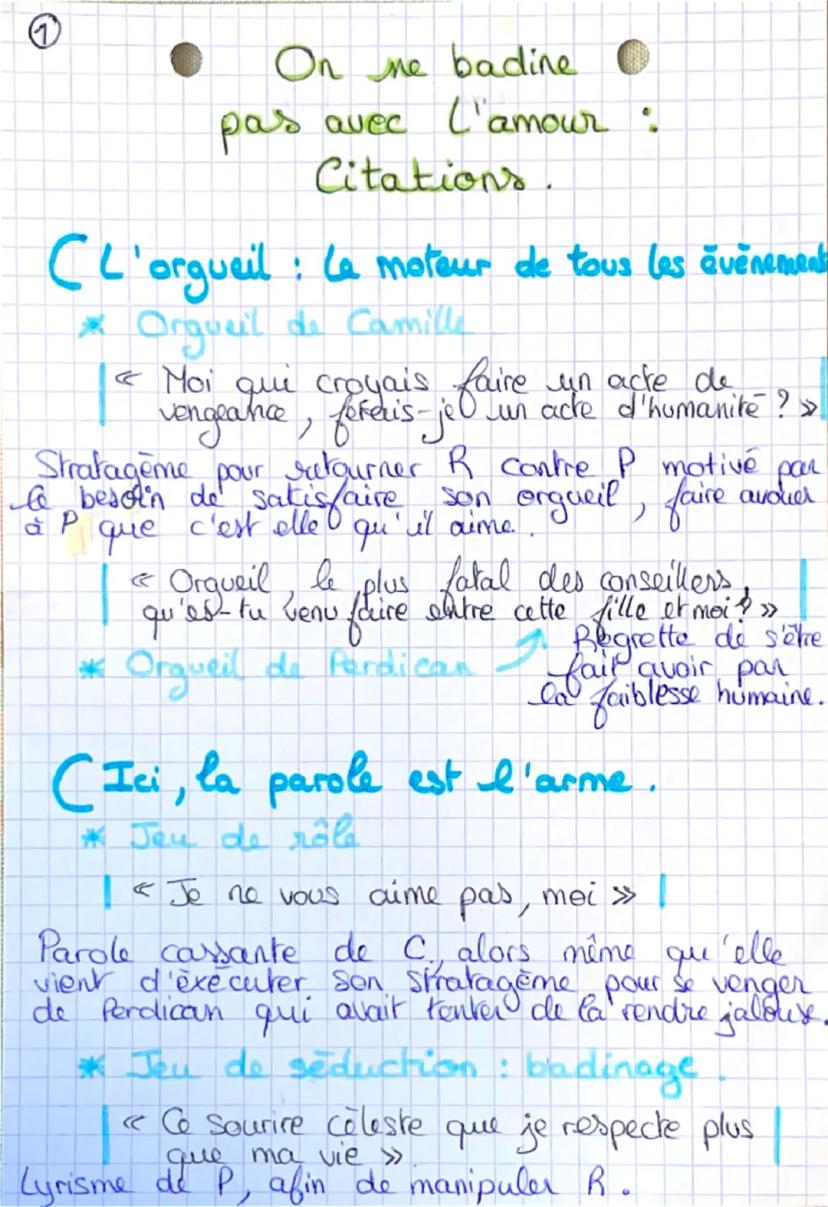 1
On ne badine
pas avec l'amour :
Citations.
L'orgueil : le moteur de tous les évènements
* Orgueil de Camille
« Moi qui croyais faire un acte de
vengeance, ferais-je un acte d'humanité ? »
Stratagème pour retourner R contre P motivé par
le besoin de satisfaire son orgueil, faire avouer
à P que c'est elle qu'il aime.
« Orgueil, le plus fatal des conseillers,
qu'es-tu venu faire entre cette fille et moi ? »
* Orgueil de Perdican
Regrette de s'être
fait avoir par
la faiblesse humaine.
Ici, la parole est l'arme.
* Jeu de rôle
« Je ne vous aime pas, moi »
Parole cassante de C., alors même qu'elle
vient d'éxécuter son stratagème pour se venger
de Perdican qui avait tenter de la rendre jalouse.
* Jeu de séduction : badinage.
« Ce sourire céleste que je respecte plus
que ma vie »
Lyrisme de P, afin de manipuler R.